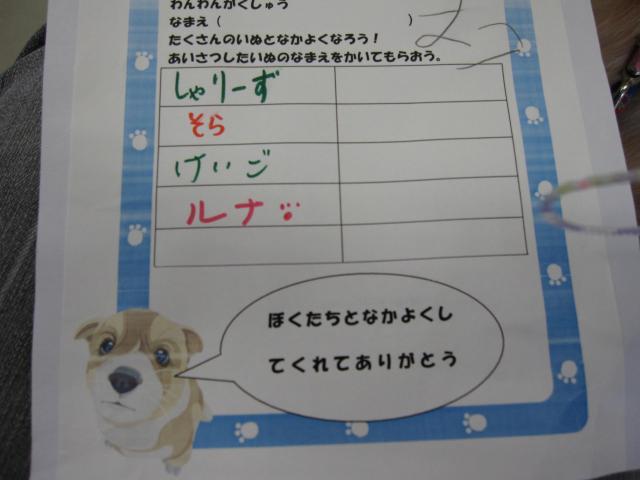 わんわんがくしゅう
なまえ（　　　　　　　　　　）
たくさんのいぬとなかよくなろう！
あいさつしたいぬのなまえをかいてもらおう。
しゃりーず
そら
けいご
ルナ
ぼくたちとなかよくし
てくれてありがとう